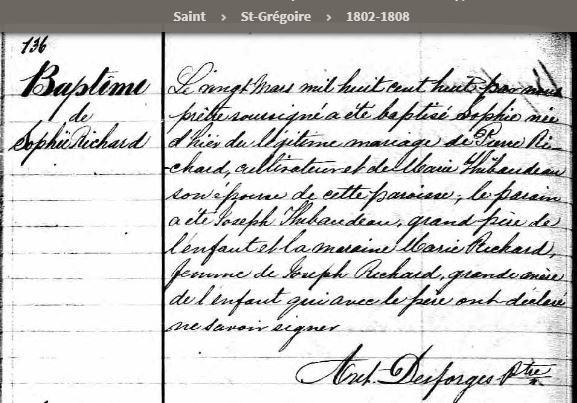 Saint › St-Grégoire › 1802-1808
136
Baptême
de
Sophie Richard
Le vingt Mars mil huit cent huit par nous
prêtre soussigné a été baptisé Sophie née
d'hier du légitime mariage de Pierre Ri-
-chard, cultivateur et de Marie Thibaudeau
son épouse de cette paroisse; le parain
a été Joseph Thibaudeau, grand père de
l'enfant et la maraine Marie Richard,
femme de Joseph Richard, grande mère
de l'enfant qui avec le père ont déclaré
ne savoir signer
Ant. Desforges Ptre